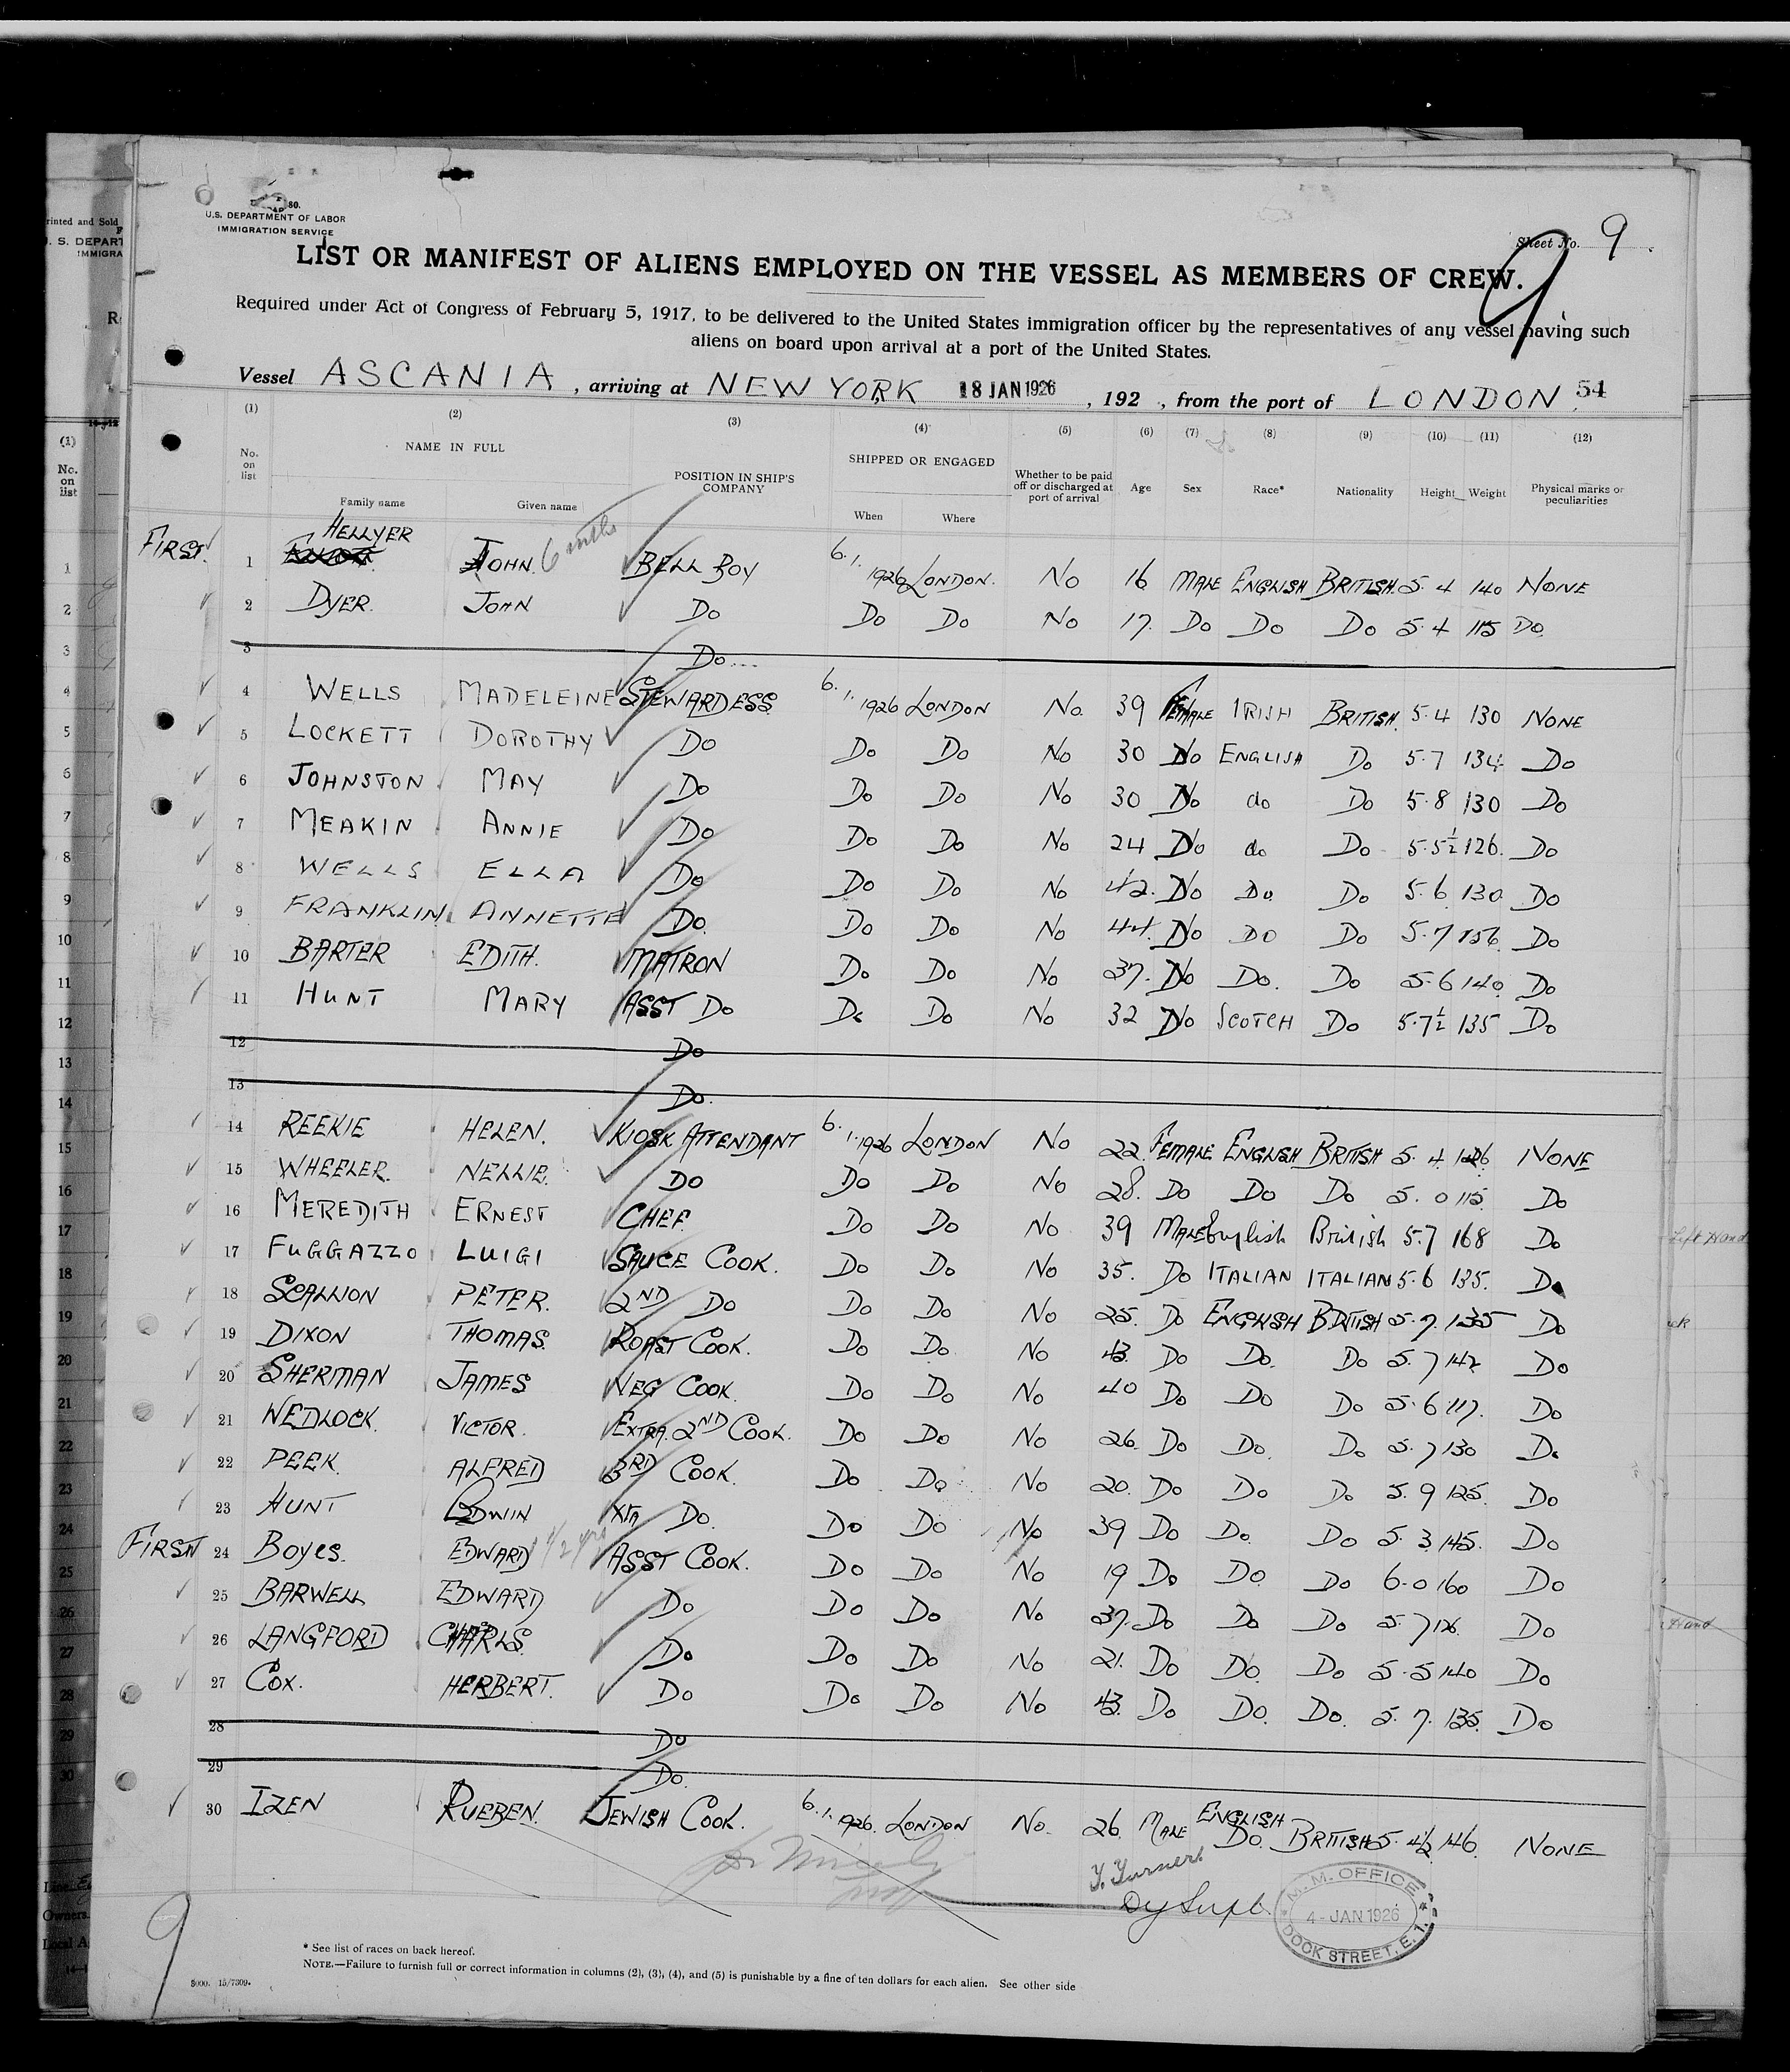 U.S. DEPARTMENT OF LABOR
IMMIGRATION SERVICE
Sheet No. 9
9
LIST OR MANIFEST OF ALIENS EMPLOYED ON THE VESSEL AS MEMBERS OF CREW.
Required under Act of Congress of February 5, 1917, to be delivered to the United States immigration officer by the representatives of any vessel having such
aliens on board upon arrival at a port of the United States.
Vessel ASCANIA, arriving at NEW YORK 18 JAN 1926, 192 , from the port of LONDON. 54
(1) (2) (3) (4) (5) (6) (7) (8) (9) (10) (11) (12)
No. on list NAME IN FULL Family name Given name POSITION IN SHIP'S COMPANY SHIPPED OR ENGAGED When Where Whether to be paid off or discharged at port of arrival Age Sex Race* Nationality Height Weight Physical marks or peculiarities
FIRST. 1 HELLYER JOHN. 6 mths BELL BOY 6.1.1926 LONDON. No 16 MALE ENGLISH BRITISH. 5.4 140 NONE
2 DYER. JOHN Do Do Do No 17. Do Do Do 5.4 115 Do.
3 Do...
4 WELLS MADELEINE STEWARDESS 6.1.1926 LONDON No. 39 FEMALE IRISH BRITISH. 5.4 130 NONE
5 LOCKETT DOROTHY Do Do Do No 30 Do ENGLISH Do 5.7 134 Do
6 JOHNSTON MAY Do Do Do No 30 Do do Do 5.8 130 Do
7 MEAKIN ANNIE Do Do Do No 24 Do do Do 5.5½ 126. Do
8 WELLS ELLA Do Do Do No 42. Do Do. Do 5.6 130 Do
9 FRANKLIN ANNETTE Do. Do Do No 44. Do DO Do 5.7 156. Do
10 BARTER EDITH. MATRON Do Do No 37. Do Do. Do 5.6 140. Do
11 HUNT MARY ASST Do Do Do No 32 Do SCOTCH Do 5.7½ 135 Do
12 Do
13 Do.
14 REEKIE HELEN. KIOSK ATTENDANT 6.1.1926 LONDON No 22. FEMALE ENGLISH BRITISH 5.4. 126. NONE
15 WHEELER. NELLIE. Do Do Do No 28. Do Do Do 5.0 115. Do
16 MEREDITH ERNEST CHEF. Do Do No 39 MALE English British 5.7 168 Do
17 FUGGAZZO LUIGI SAUCE COOK. Do Do No 35. Do ITALIAN ITALIAN 5.6 135. Do
18 SCALLION PETER. 2ND Do Do Do No 25. Do ENGLISH BRITISH 5.7. 135 Do
19 DIXON THOMAS. ROAST COOK. Do Do. No 43. Do Do. Do 5.7 142 Do
20 SHERMAN JAMES VEG COOK. Do Do No 40 Do Do Do 5.6 117. Do
21 WEDLOCK. VICTOR. EXTRA. 2ND COOK. Do Do No 26. Do Do. Do 5.7 130 Do
22 PEEK. ALFRED 3RD COOK. Do Do No 20. Do Do Do 5.9 125. Do
23 HUNT EDWIN XTA Do. Do Do No 39 Do Do. Do 5.3 145. Do
FIRST 24 BOYES. EDWARD ASST COOK. Do Do No 19 Do Do. Do 6.0 160 Do
25 BARWELL EDWARD Do Do Do No 37. Do Do Do 5.7 126. Do
26 LANGFORD CHARLS. Do Do Do No 21. Do Do. Do 5.5 140 Do
27 COX. HERBERT. Do Do Do No 43. Do Do. Do. 5.7. 135. Do
28 Do
29 Do.
30 IZEN RUEBEN. JEWISH COOK. 6.1.1926. LONDON No. 26. MALE ENGLISH Do. BRITISH 5.4½ 146. NONE
Dy Supt.
M.M. OFFICE
4 - JAN 1926
DOCK STREET, E.1.
9
* See list of races on back hereof.
NOTE.—Failure to furnish full or correct information in columns (2), (3), (4), and (5) is punishable by a fine of ten dollars for each alien. See other side
5000. 15/7309.